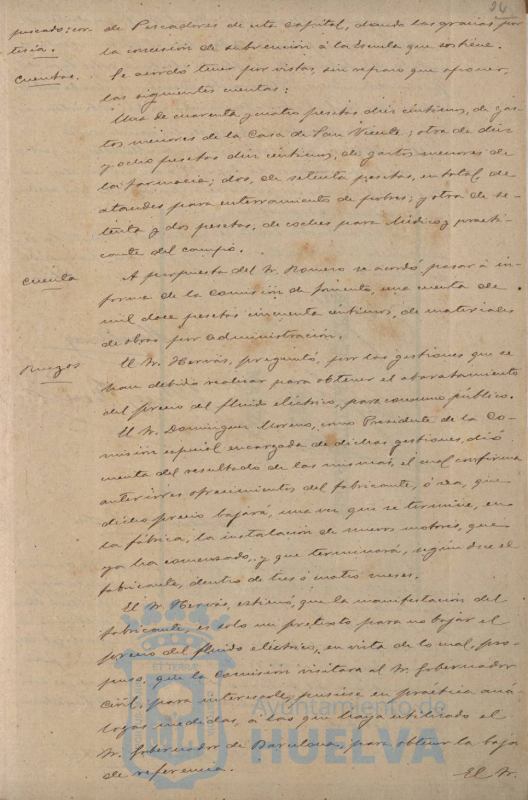 26
pescado: cor-
tesía.
de Pescadores de esta capital, dando las gracias por
la concesión de subvención á la escuela que sostiene.
Cuentas.
Se acordó tener por vistas, sin reparo que oponer,
las siguientes cuentas:
Una de cuarenta y cuatro pesetas diez céntimos, de gas-
tos menores de la Casa de San Vicente; otra de diez
y ocho pesetas diez céntimos, de gastos menores de
la farmacia; dos, de setenta pesetas, en total, de
ataudes para enterramiento de pobres; y otra de se-
tenta y dos pesetas, de coches para Médico y practi-
cante del campo.
Cuenta
A propuesta del Sr. Romero se acordó pasar á in-
forme de la Comisión de fomento, una cuenta de
mil doce pesetas cincuenta céntimos, de materiales
de obras por administración.
Ruegos
El Sr. Hervás, preguntó, por las gestiones que se
han debido realizar para obtener el abaratamiento
del precio del fluido eléctrico, para consumo público.
El Sr. Dominguez Moreno, como Presidente de la Co-
misión especial encargada de dichas gestiones, dió
cuenta del resultado de las mismas, el cual confirma
anteriores ofrecimientos del fabricante, ó sea, que
dicho precio bajará, una vez que se termine, en
la fábrica, la instalación de nuevos motores, que
ya ha comenzado, y que terminará, según dice el
fabricante, dentro de tres ó cuatro meses.
El Sr. Hervás, estimó, que la manifestación del
fabricante, es solo un pretexto para no bajar el
precio del fluido eléctrico, en vista de lo cual, pro-
puso, que la Comisión visitara al Sr. Gobernador
Civil, para interesarle pusiese en practica aná-
logas medidas, á las que haya utilizado el
Sr. Gobernador de Barcelona, para obtener la baja
de referencia.
El Sr.
ET TERRAE
Ayuntamiento de
HUELVA